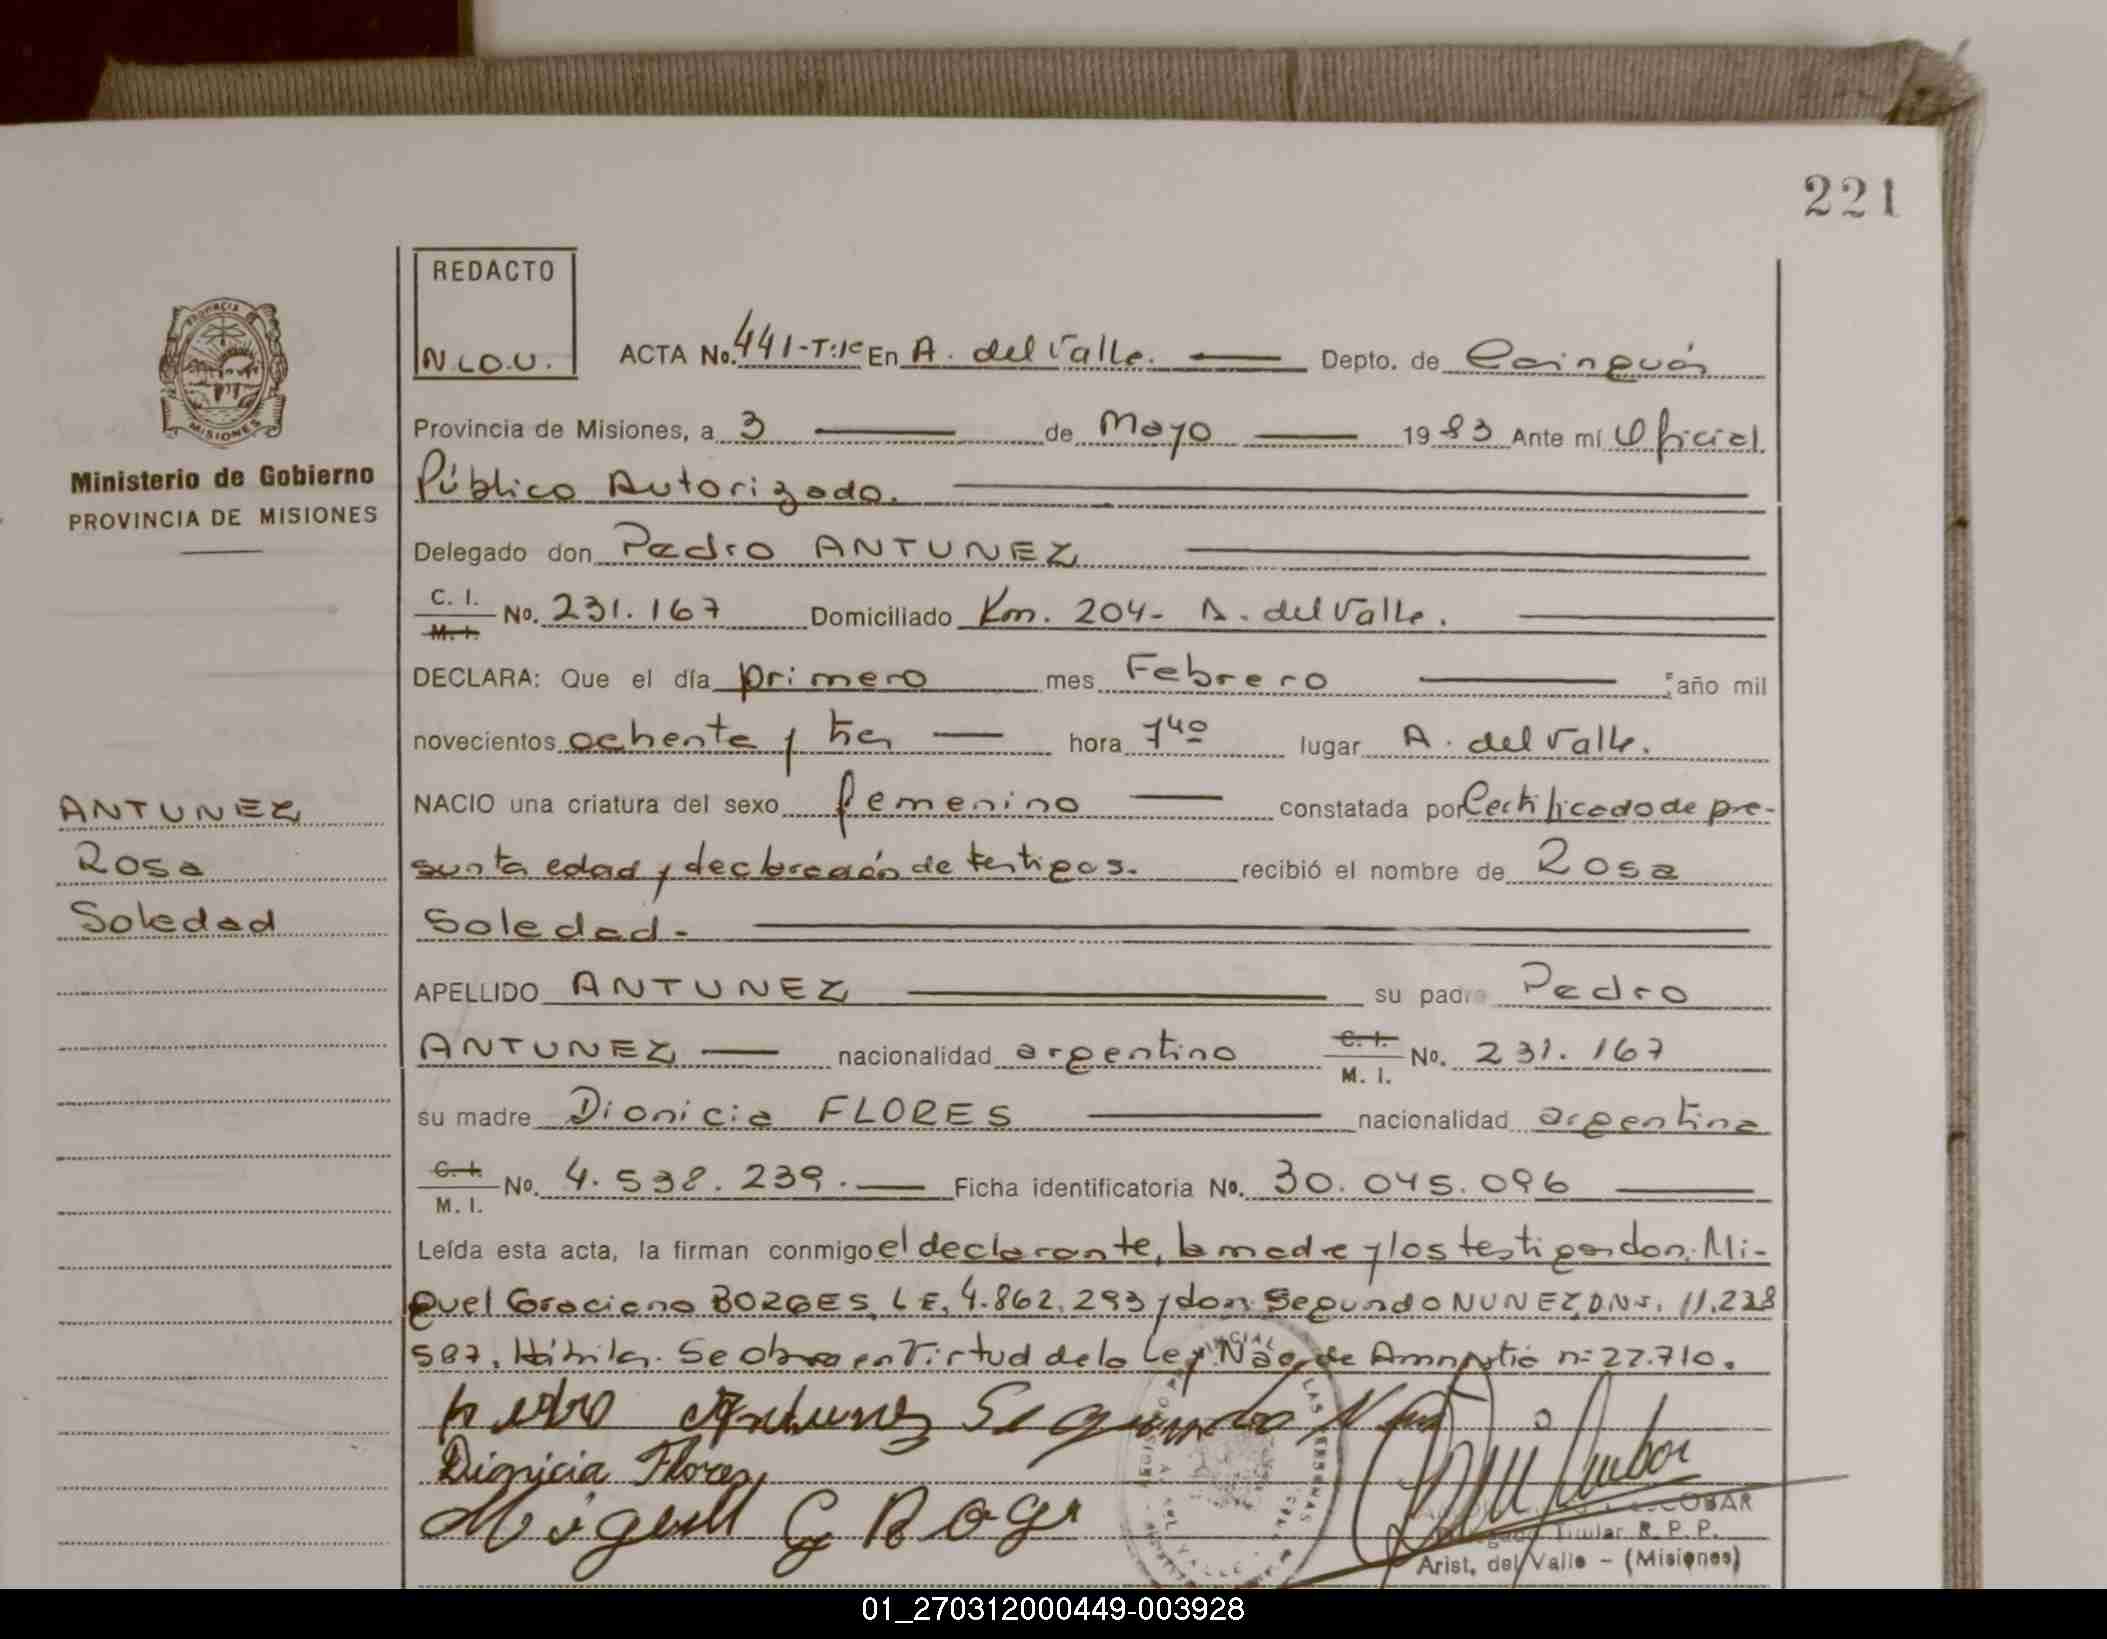 221
REDACTO
N.L.D.U.
ACTA No. 441-T:1º En A. del Valle. Depto. de Cainguás
Provincia de Misiones, a 3 de Mayo 1983 Ante mí Oficial
Público Autorizado.
Delegado don Pedro ANTUNEZ
C. I. M. I. No. 231.167 Domiciliado Km. 204- A. del Valle.
DECLARA: Que el día primero mes Febrero año mil
novecientos ochenta y tres hora 7 40 lugar A. del Valle.
NACIO una criatura del sexo femenino constatada por Certificado de pre-
sunta edad y declaración de testigos. recibió el nombre de Rosa
Soledad.
APELLIDO ANTUNEZ su padre Pedro
ANTUNEZ nacionalidad argentino C. I. M. I. No. 231.167
su madre Dionicia FLORES nacionalidad argentina
C. I. M. I. No. 4.538.239. Ficha identificatoria No. 30.045.096
Leída esta acta, la firman conmigo el declarante, la madre y los testigos don Mi-
guel Graciano BORGES, L.E. 4.862.293 y don Segundo NUNEZ, D.N.I. 11.228
587. Hábiles. Se obra en Virtud de la Ley Nac. de Amnistía nº 22.710.
pedro Antunez Segundo
Dionicia Flores
Miguell G
ESCOBAR
Delegado Titular R. P. P.
Arist. del Valle - (Misiones)
PROVINCIA DE
MISIONES
Ministerio de Gobierno
PROVINCIA DE MISIONES
ANTUNEZ
Rosa
Soledad
01_270312000449-003928